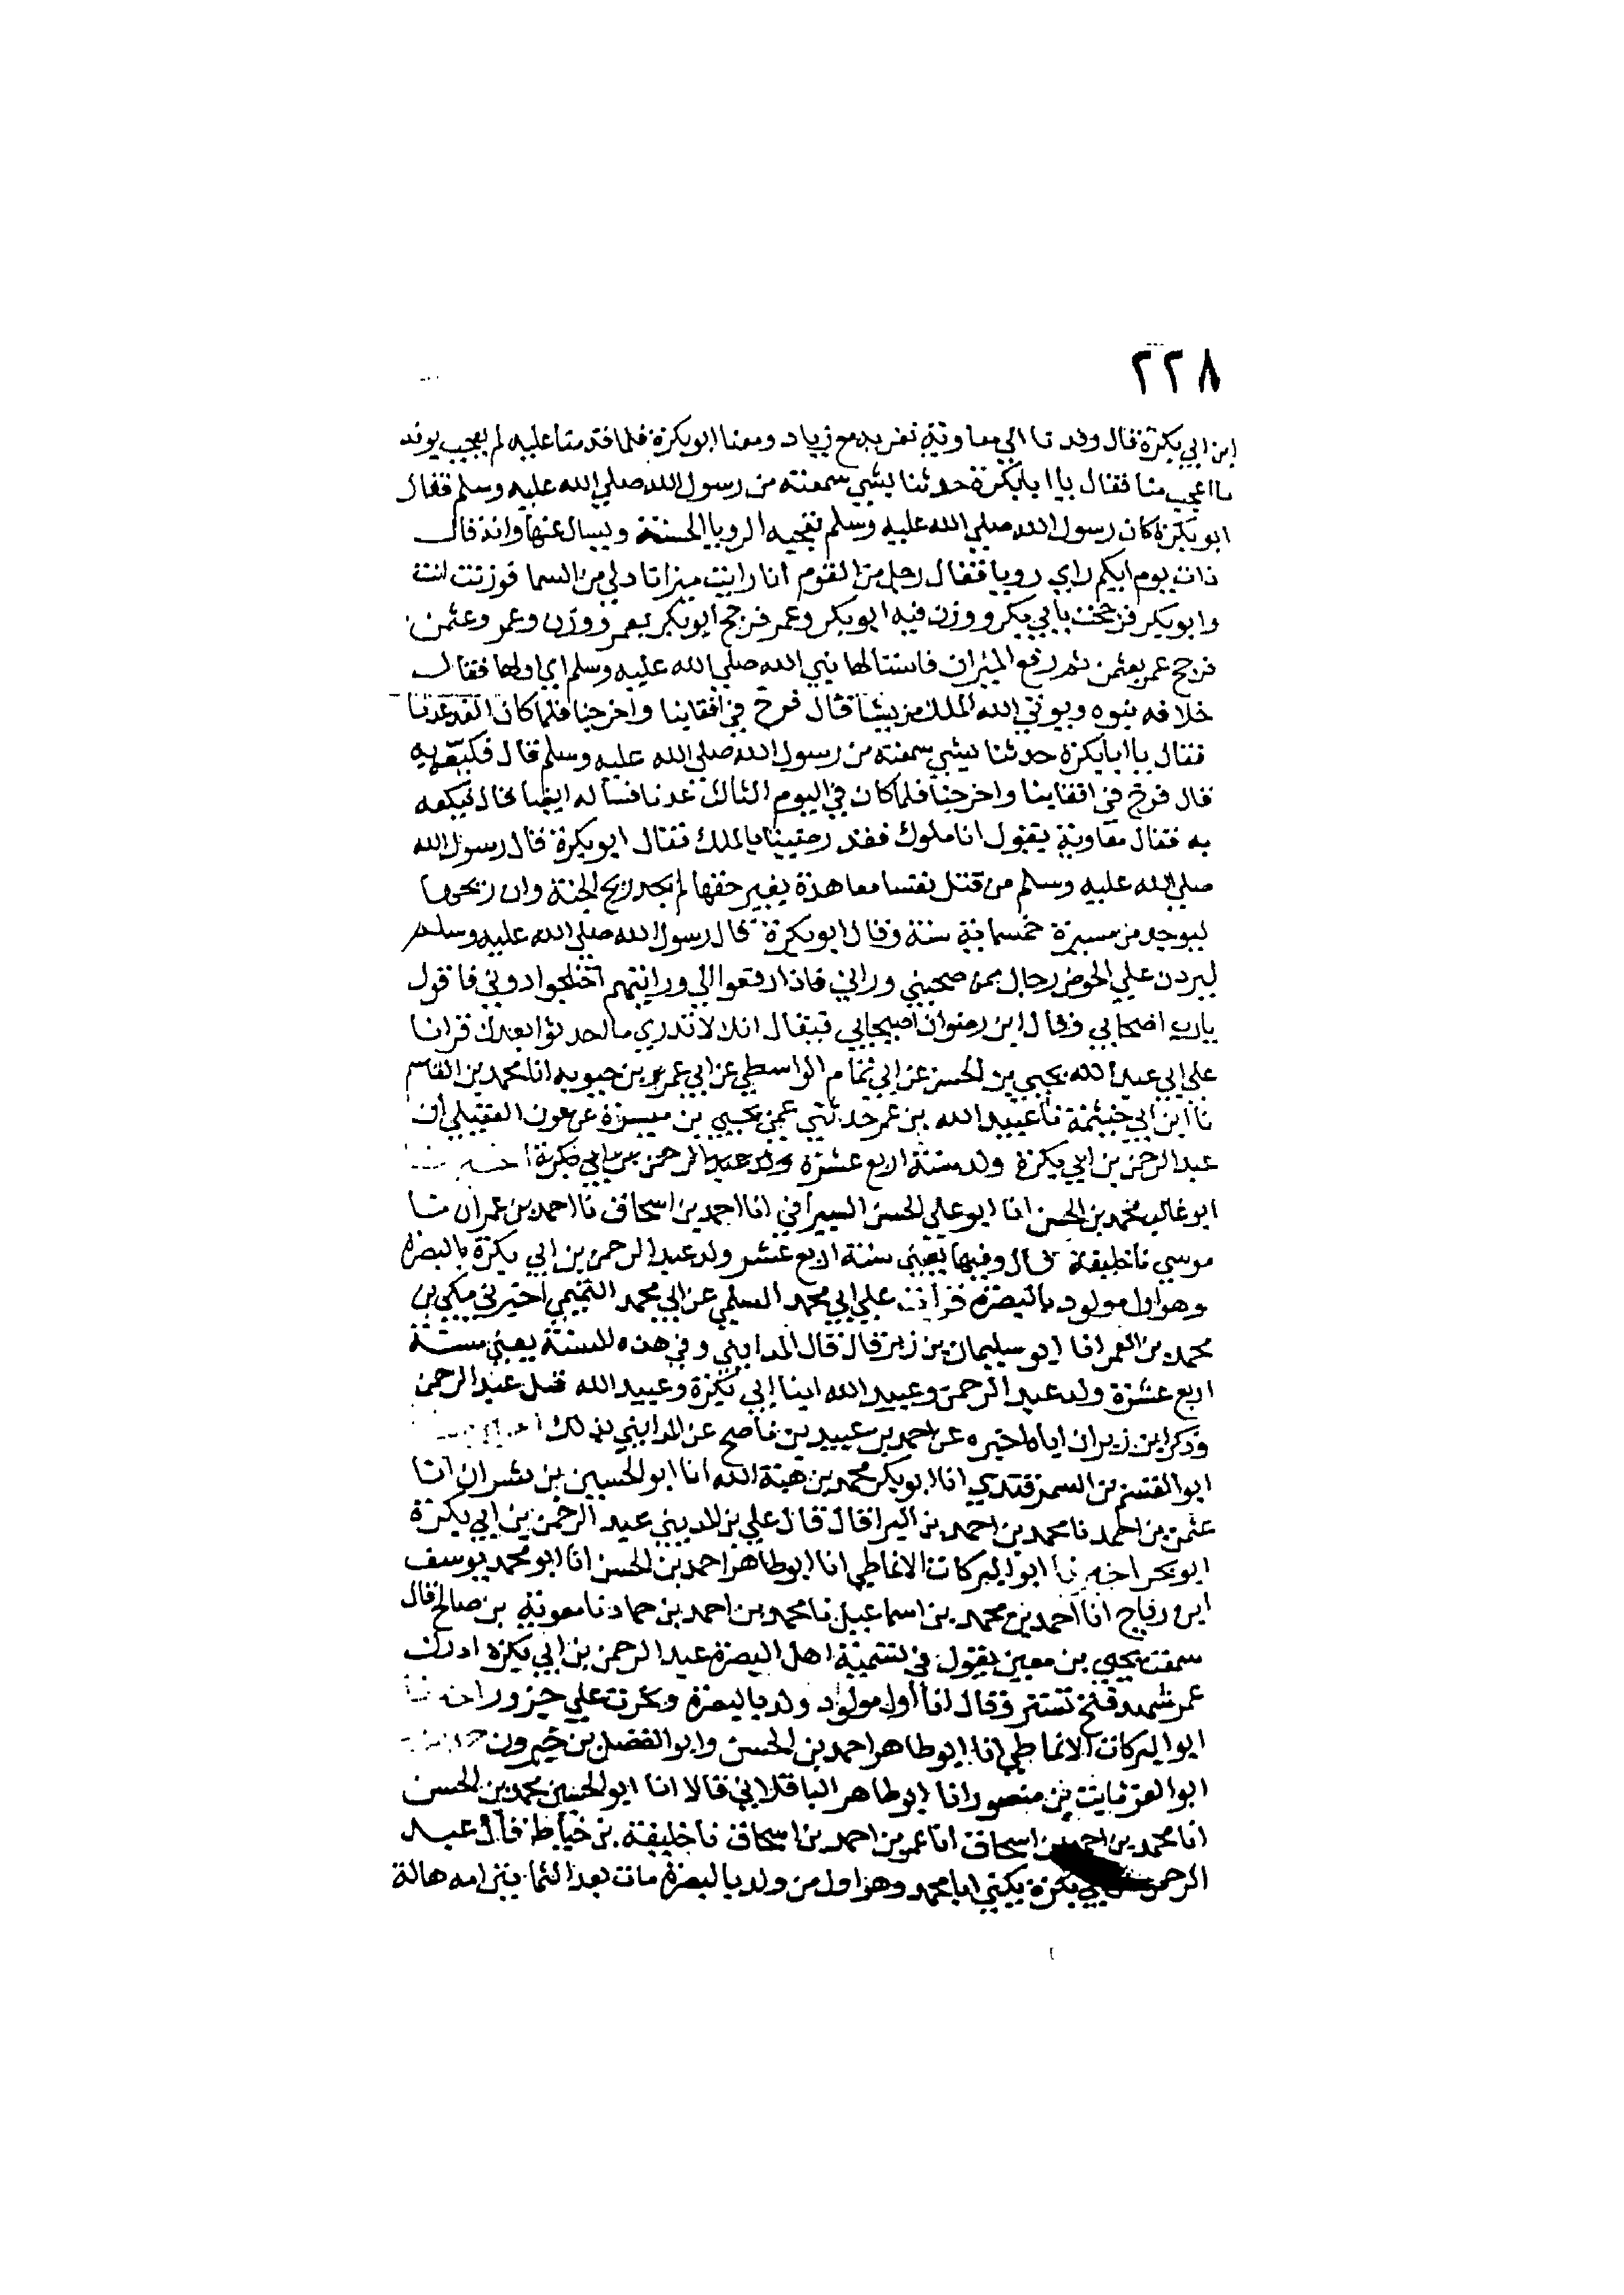 ٢٢٨
ابن ابي بكرة قال وفدنا الي معاوية نعزيه مع زياد ومعنا ابو بكرة فلما قدمنا عليه لم يعجب بوفد
ما اعجب منا فقال يا ابا بكرة حدثنا بشي سمعته من رسول الله صلي الله عليه وسلم فقال
ابو بكرة كان رسول الله صلي الله عليه وسلم تعجبه الرويا الحسنة ويسال عنها وانه قال
ذات يوم ايكم راي رويا فقال رجل من القوم انا رايت ميزانا دلي من السما فوزنت انت
وابو بكر فرجحت بابي بكر ووزن فيه ابو بكر وعمر فرجح ابو بكر بعمر ووزن وعمر وعثمن
فرجح عمر بعثمن ثم رفع الميزان فاستالها نبي الله صلي الله عليه وسلم اي اولها فقال
خلافه نبوه ويوتي الله الملك من يشا قال فزخ في اقفاينا واخرجنا فلما كان الغد عدنا
فقال يا ابا بكرة حدثنا بشي سمعته من رسول الله صلي الله عليه وسلم قال فبكعه به
قال فزخ في اقفاينا واخرجنا فلما كان في اليوم الثالث عدنا فساله ايضا قال فبكعه
به فقال معاوية يقول انا ملوك فقد رضينا بالملك فقال ابو بكرة قال رسول الله
صلي الله عليه وسلم من قتل نفسا معاهدة بغير حقها لم يجد ريح الجنة وان ريحها
ليوجد من مسيرة خمسماية سنة وقال ابو بكرة قال رسول الله صلي الله عليه وسلم
ليردن علي الحوض رجال ممن صحبني وراني فاذا رفعوا الي ورايتهم اختلجوا دوني فاقول
يا رب اصحابي وقال ابن رضوان اصيحابي فيقال انك لا تدري ما احدثوا بعدك قرانا
علي ابي عبد الله يحيي بن الحسن عن ابي تمام الواسطي عن ابي عمر بن حيويه انا محمد بن القاسم
نا ابن ابي خيثمة نا عبيد الله بن عمر حدثني عمي يحيي بن ميسرة عن عون العقيلي ان
عبد الرحمن بن ابي بكرة ولد سنة اربع عشرة ولد عبد الرحمن بن ابي بكرة
ابو غالب محمد بن الحسن انا ابو علي الحسن السيرافي انا احمد بن اسحاق نا احمد بن عمران نا
موسي نا خليفة قال وفيها يعني سنة اربع عشر ولد عبد الرحمن بن ابي بكرة بالبصرة
وهو اول مولود بالبصرة قرات علي ابي محمد السلمي عن ابي محمد التميمي اخبرني مكي بن
محمد بن الغمر انا ابو سليمان بن زبر قال قال المدايني وفي هذه السنة يعني سنة
اربع عشرة ولد عبد الرحمن وعبيد الله ابنا ابي بكرة وعبيد الله قبل عبد الرحمن
وذكر ابن زبر ان اباه اخبره عن احمد بن عبيد بن ناصح عن المدايني بذلك
ابو القسم بن السمرقندي انا ابو بكر محمد بن هبة الله انا ابو الحسين بن بشران انا
عثمن بن احمد نا محمد بن احمد بن البرا قال قال علي بن المديني عبد الرحمن بن ابي بكرة
ابو بحر اخبرنا ابو البركات الانماطي انا ابو طاهر احمد بن الحسن انا ابو محمد يوسف
ابن رباح انا احمد بن محمد بن اسماعيل نا محمد بن احمد بن حماد نا معوية بن صالح قال
سمعت يحيي بن معين يقول في تسمية اهل البصرة عبد الرحمن بن ابي بكرة ادرك
عمر شهد فتح تستر وقال انا اول مولود ولد بالبصرة ونحرت علي جزور
ابو البركات الانماطي انا ابو طاهر احمد بن الحسن وابو الفضل بن خيرون
ابو العز ثابت بن منصور انا ابو طاهر الباقلاني قالا انا ابو الحسين محمد بن الحسن
انا محمد بن احمد بن اسحاق انا عمر بن احمد بن اسحاق نا خليفة بن خياط قال عبد
الرحمن ابي بكرة يكني ابا محمد وهو اول من ولد بالبصرة مات بعد الثمانين امه هالة